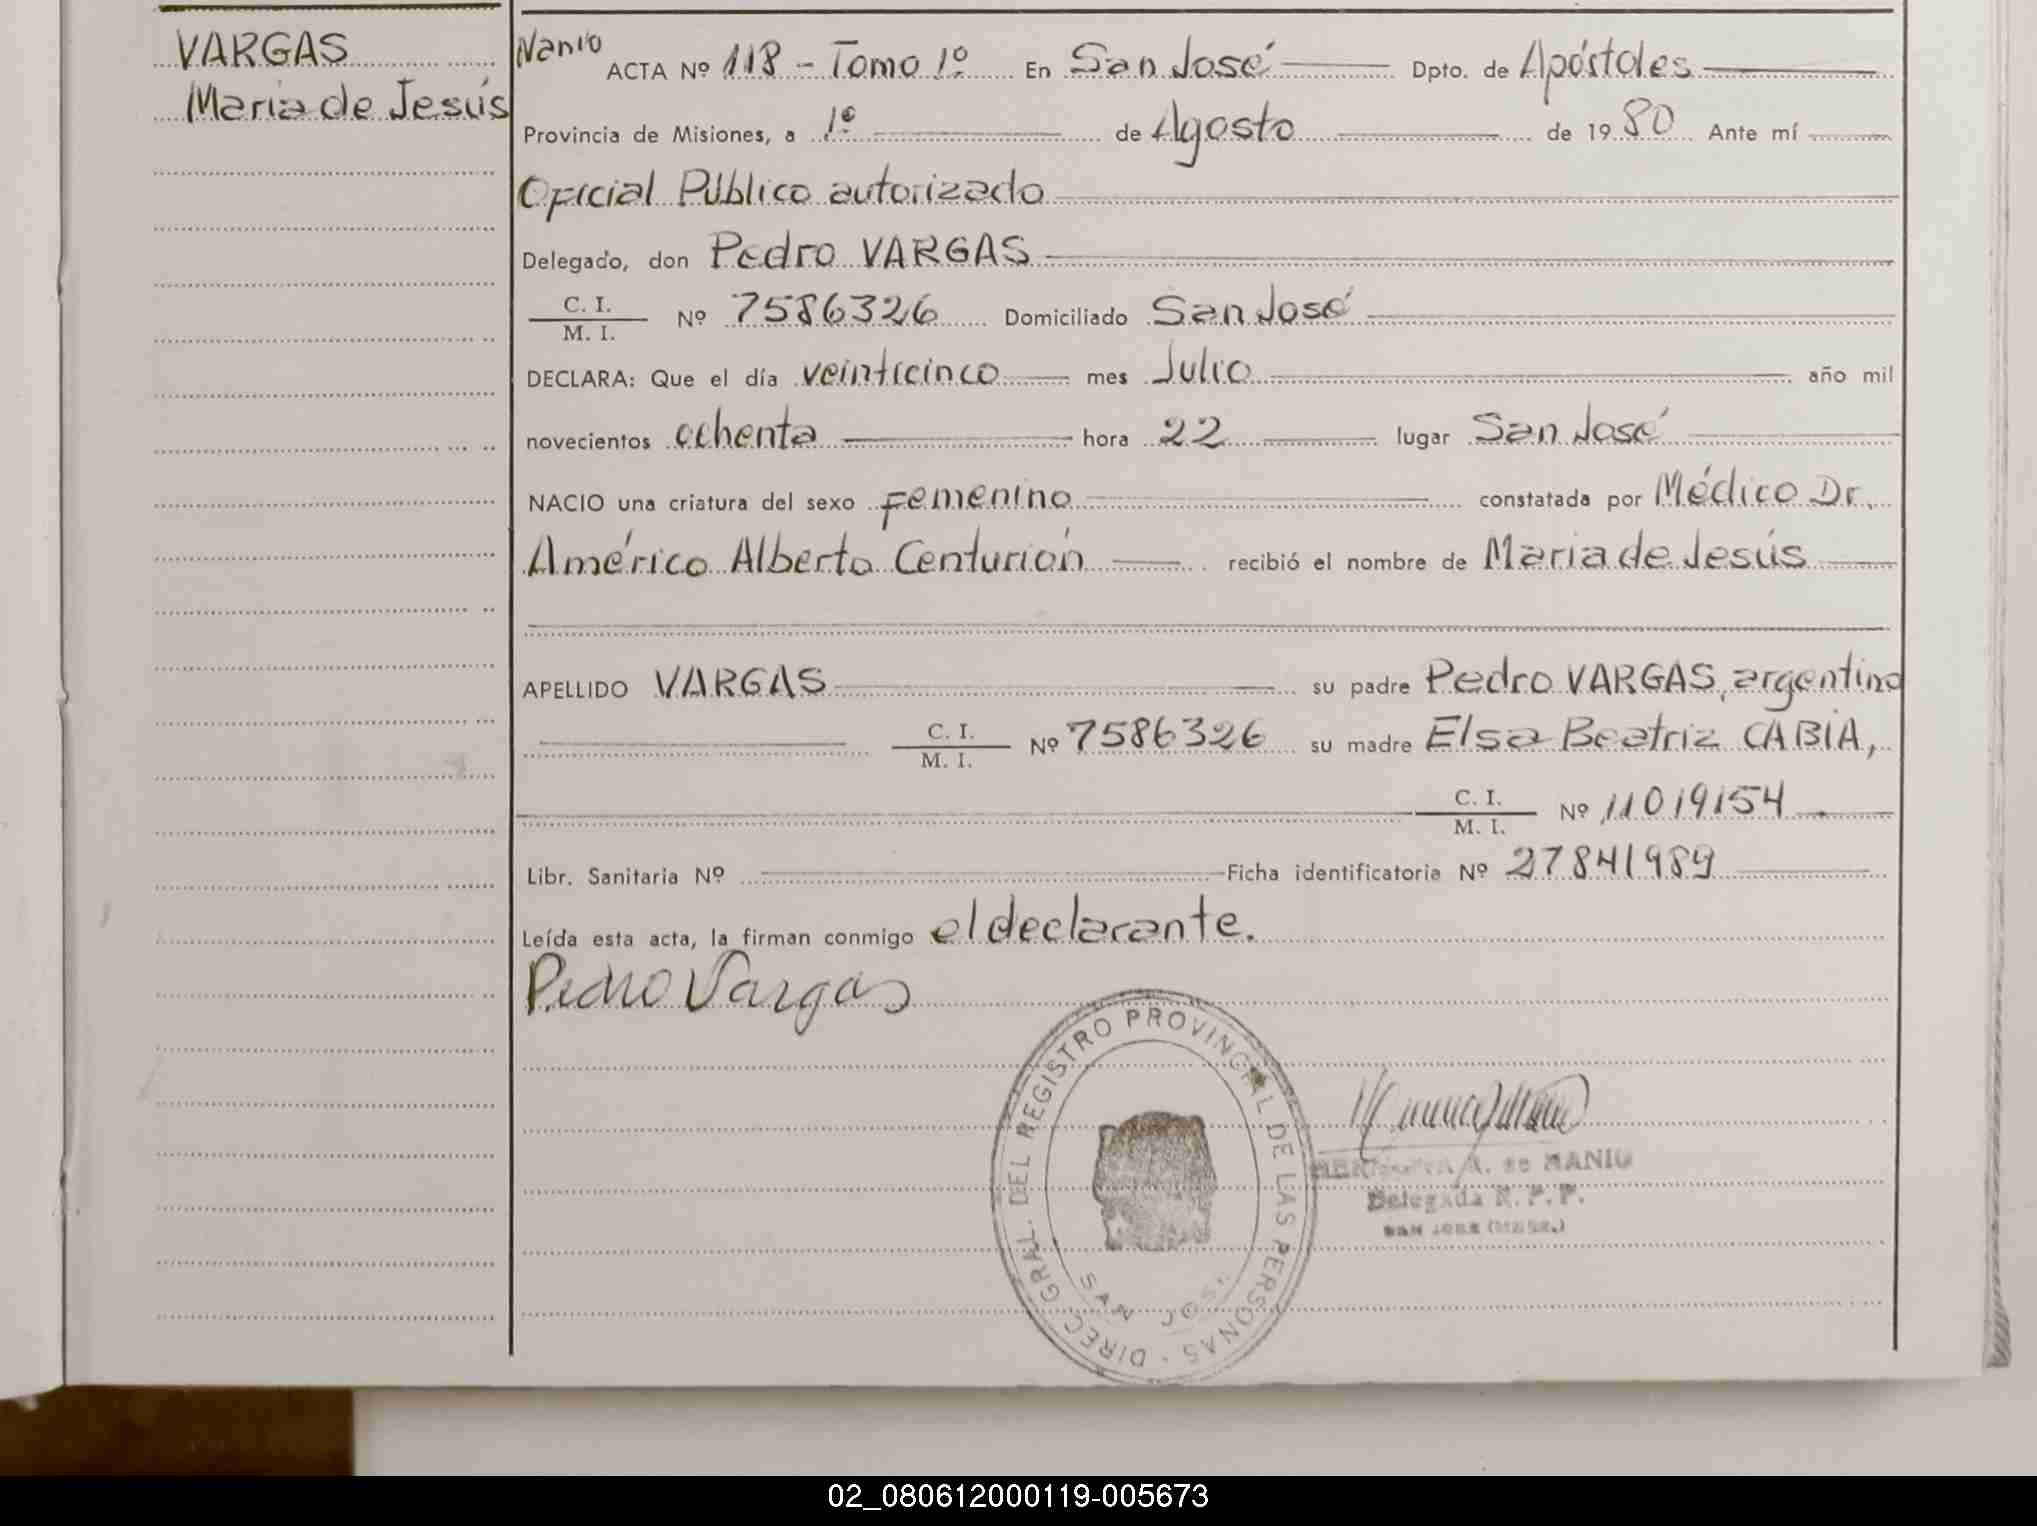 VARGAS
Maria de Jesús
Nanio
ACTA Nº 118 - Tomo 1º En San José Dpto. de Apóstoles
Provincia de Misiones, a 1º de Agosto de 1980 Ante mí
Oficial Público autorizado
Delegado, don Pedro VARGAS
C. I.
M. I. Nº 7586326 Domiciliado San José
DECLARA: Que el día veinticinco mes Julio año mil
novecientos ochenta hora 22 lugar San José
NACIO una criatura del sexo Femenino constatada por Médico Dr.
Américo Alberto Centurión recibió el nombre de Maria de Jesús
APELLIDO VARGAS su padre Pedro VARGAS, argentino
C. I.
M. I. Nº 7586326 su madre Elsa Beatriz CABIA,
C. I.
M. I. Nº 11019154
Libr. Sanitaria Nº Ficha identificatoria Nº 27841989
Leída esta acta, la firman conmigo el declarante.
Pedro Vargas
DIREC. GRAL. DEL REGISTRO PROVINCIAL DE LAS PERSONAS
SAN JOSE
A. de NANIO
Delegada R. P. P.
SAN JOSE (MNES.)
02_080612000119-005673